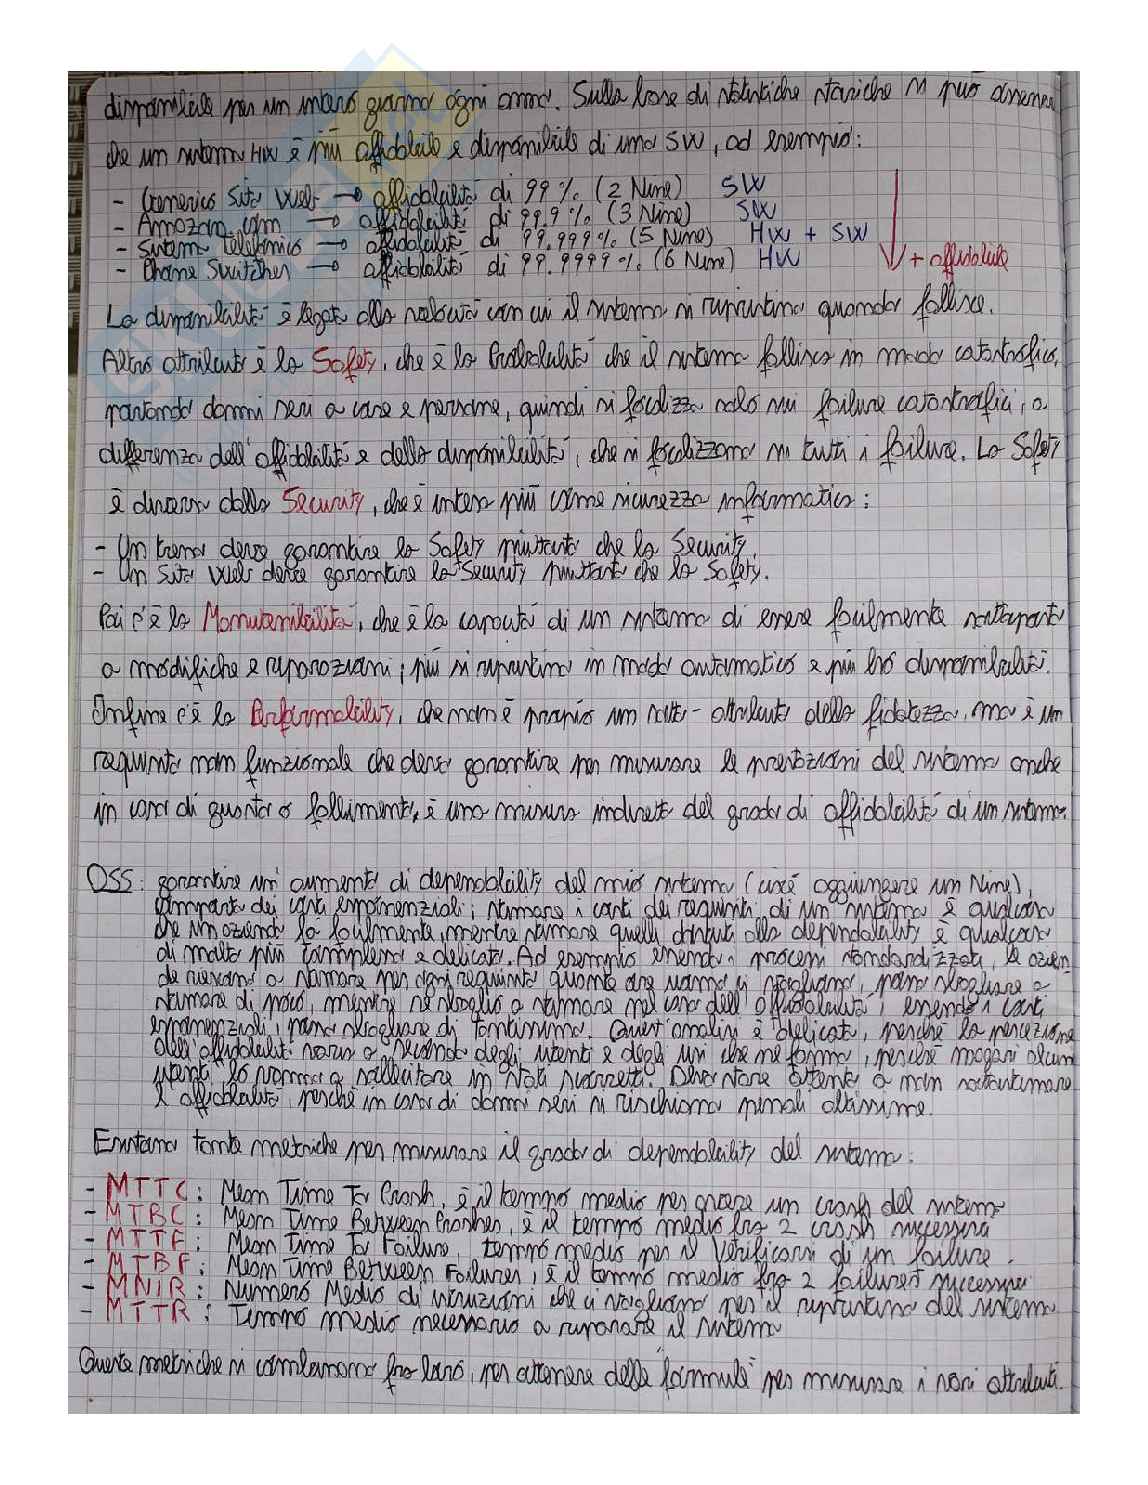 disponibile per un intero giorno ogni anno. Sulla base di statistiche storiche si può osservare
che un sistema HW è più affidabile e disponibile di uno SW, ad esempio:
- Generico Sito Web → affidabilità di 99% (2 Nine) SW
- Amazon.com → affidabilità di 99.9% (3 Nine) SW
- Sistema telefonico → affidabilità di 99.999% (5 Nine) HW + SW
- Phone Switcher → affidabilità di 99.9999% (6 Nine) HW
+ affidabile
La disponibilità è legata alla velocità con cui il sistema si ripristina quando fallisce.
Altro attributo è la Safety, che è la Probabilità che il sistema fallisca in modo catastrofico,
portando danni seri a cose e persone, quindi si focalizza solo sui failure catastrofici, a
differenza dell'affidabilità e della disponibilità, che si focalizzano su tutti i failure. La Safety
è diversa dalla Security, che è intesa più come sicurezza informatica:
- Un treno deve garantire la Safety piuttosto che la Security.
- Un Sito Web deve garantire la Security piuttosto che la Safety.
Poi c'è la Manutenibilità, che è la capacità di un sistema di essere facilmente sottoposto
a modifiche e riparazioni; più si ripristina in modo automatico e più ho disponibilità.
Infine c'è la Performability, che non è proprio un sotto-attributo della fidatezza, ma è un
requisito non funzionale che devo garantire per misurare le prestazioni del sistema anche
in caso di guasto o fallimento, è una misura indiretta del grado di affidabilità di un sistema.
OSS: garantire un aumento di dependability del mio sistema (cioè aggiungere un Nine),
comporta dei costi esponenziali; stimare i costi dei requisiti di un sistema è qualcosa
che un'azienda fa facilmente, mentre stimare quelli dovuti alla dependability è qualcosa
di molto più complesso e delicato. Ad esempio essendo i processi standardizzati, le azien-
de riescono a stimare per ogni requisito quante ore uomo ci vogliono, posso sbagliare a
stimare di poco, mentre se sbaglio a stimare nel caso dell'affidabilità, essendo i costi
esponenziali, posso sbagliare di tantissimo. Quest'analisi è delicata, perché la percezione
dell'affidabilità varia a seconda degli utenti e degli usi che ne fanno, perché magari alcuni
utenti lo vanno a sollecitare in stati scorretti. Devo stare attento a non sottostimare
l'affidabilità, perché in caso di danni seri si rischiano penali altissime.
Esistono tante metriche per misurare il grado di dependability del sistema:
- MTTC: Mean Time To Crash, è il tempo medio per avere un crash del sistema
- MTBC: Mean Time Between Crashes, è il tempo medio fra 2 crash successivi
- MTTF: Mean Time To Failure, tempo medio per il verificarsi di un failure.
- MTBF: Mean Time Between Failures, è il tempo medio fra 2 failures successivi
- MNIR: Numero Medio di istruzioni che ci vogliono per il ripristino del sistema
- MTTR: Tempo medio necessario a riparare il sistema
Queste metriche si combinano fra loro, per ottenere delle "formule" per misurare i vari attributi.